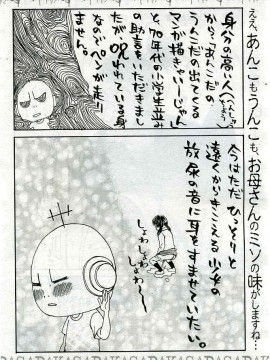 ええ、あんこもうんこも、お母さんのミソの味がしますね…
身分の高い人
から「あんこだの
うんこだの出てくる
マンガ描きゃいーじゃん」
と、70年代の小学生並み
の助言をいただきまし
たが、呪われている身
なのでペンが走り
ません。
今はただ ひっそりと
遠くからきこえる少女の
放尿の音に耳をすませていたい。
しょわ
しょわ
しょわ
しょわー